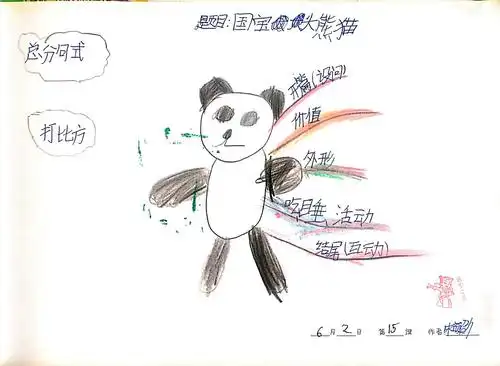 题目:国宝大熊猫
总分句式
打比方
开篇(设问)
价值
外形
吃、睡、活动
结尾(互动)
6月2日 第15课 作者